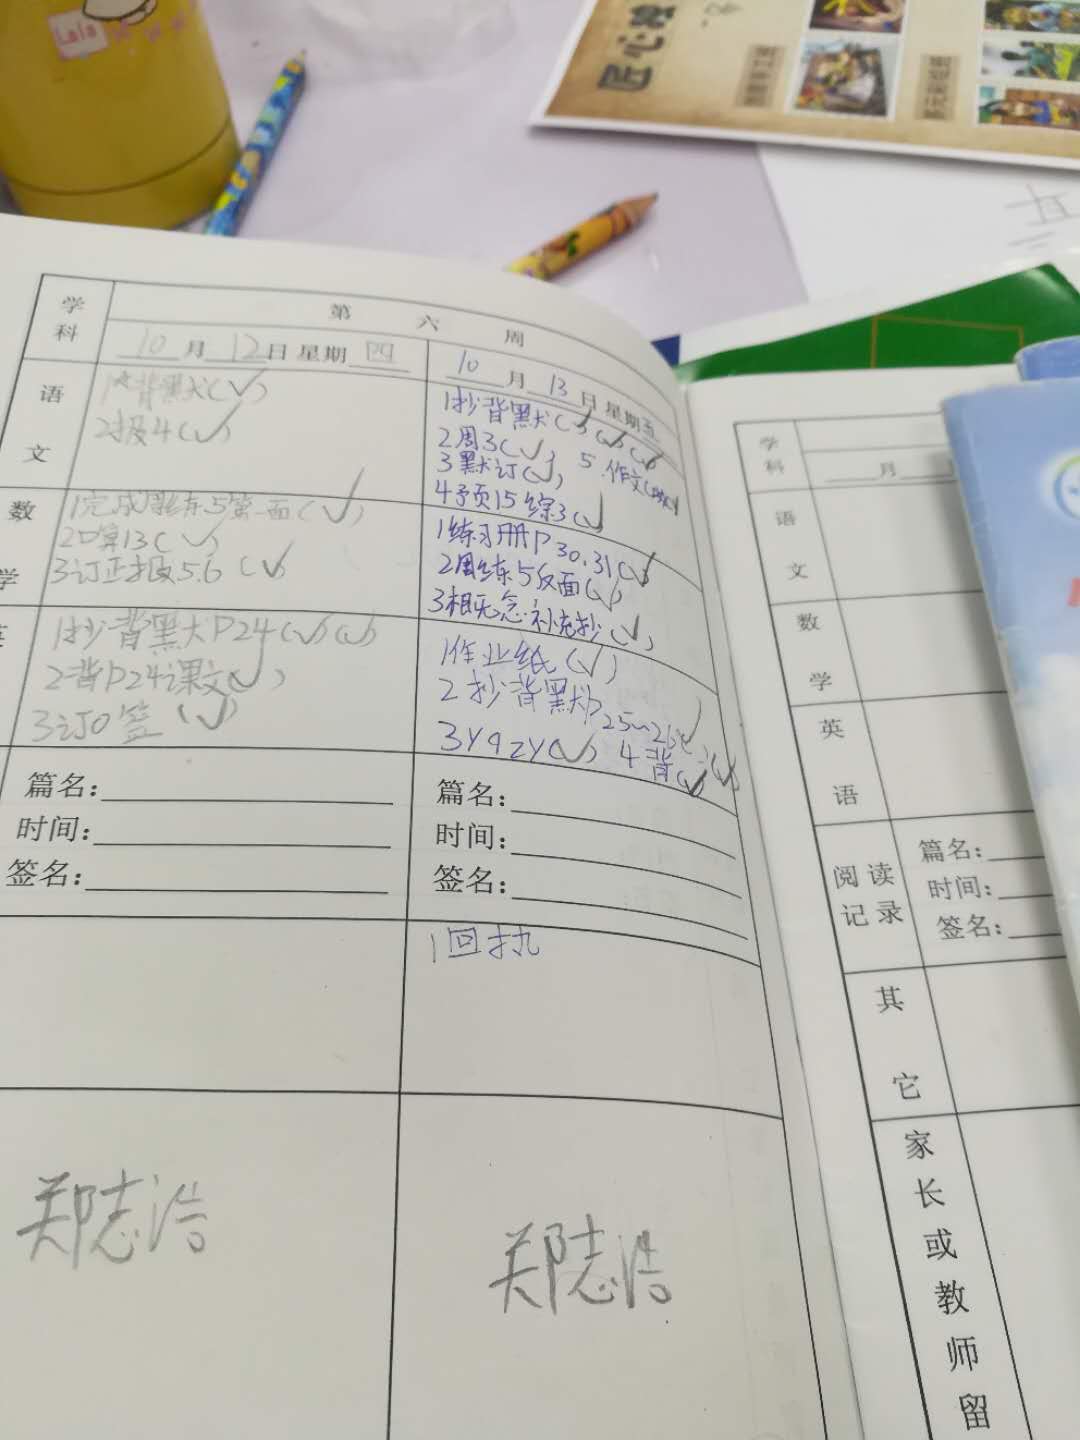 Lala
匠心
学科
第六周
10月12日星期四
10月13日星期五
语文
1背默(✓)
2报4(✓)
1抄背默(✓)(✓)(✓)
2周3(✓)
5.作文
3默订(✓)
4予页15综3(✓)
数学
1完成周练5第一面(✓)
2口算13(✓)
3订正报5.6(✓)
1练习册P30.31(✓)
2周练5反面(✓)
3相关概念补充抄(✓)
1抄背默P24(✓)(✓)
2背P24课文(✓)
3订0签(✓)
1作业纸(✓)
2抄背默P25~26
3Yqzy(✓) 4背(✓)
篇名:
时间:
签名:
篇名:
时间:
签名:
1回执
郑志浩
郑志浩
学科
月
语文
数学
英语
阅读记录
篇名:
时间:
签名:
其它
家长或教师留